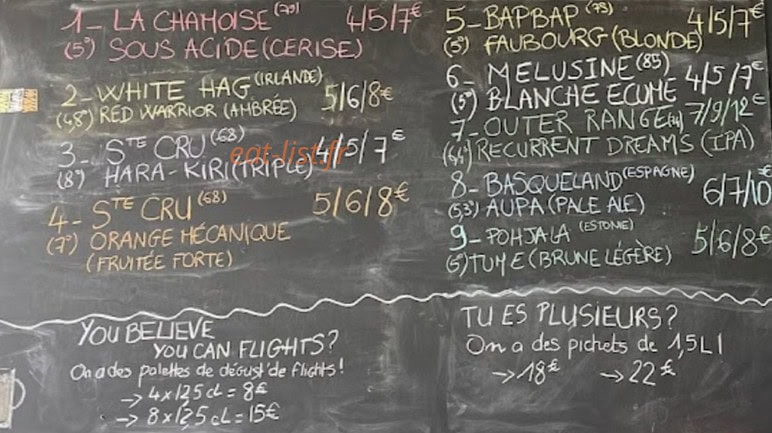 1- LA CHAMOISE (79) 4/5/7€
(5°) SOUS ACIDE (CERISE)
2- WHITE HAG (IRLANDE) 5/6/8€
(4,8°) RED WARRIOR (AMBRÉE)
3- STE CRU (68) 4/5/7€
(8°) HARA-KIRI (TRIPLE)
eat-list.fr
4- STE CRU (68) 5/6/8€
(7°) ORANGE MÉCANIQUE
(FRUITÉE FORTE)
5- BAPBAP (75) 4/5/7€
(5°) FAUBOURG (BLONDE)
6- MELUSINE (85) 4/5/7€
(5°) BLANCHE ECUME
7- OUTER RANGE 7/9/12€
RECURRENT DREAMS (IPA)
8- BASQUELAND (ESPAGNE) 6/7/10€
(5,3°) AUPA (PALE ALE)
9- POHJALA (ESTONIE) 5/6/8€
(5°) TUME (BRUNE LÉGÈRE)
YOU BELIEVE
YOU CAN FLIGHTS?
On a des palettes de dégust' de flights!
→ 4x12,5 cL = 8€
→ 8x12,5 cL = 15€
TU ES PLUSIEURS?
On a des pichets de 1,5L!
→ 18€ → 22€